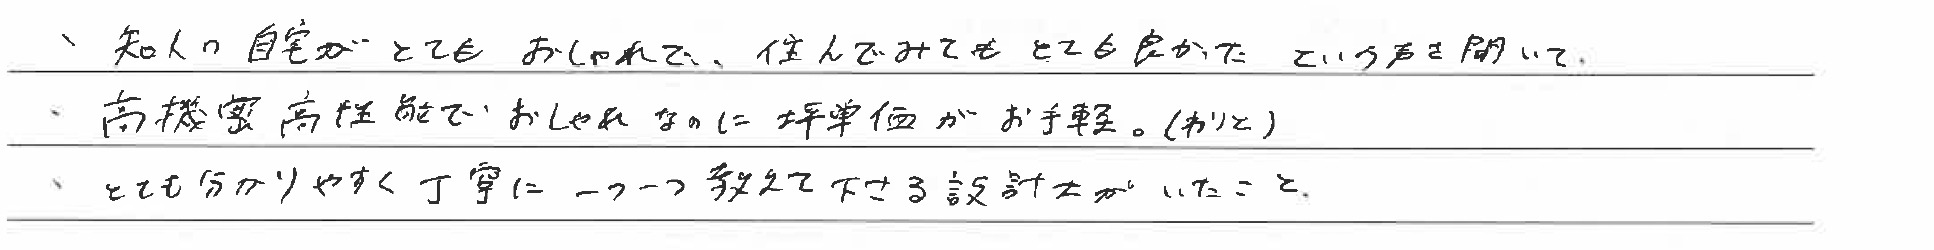 、知人の自宅がとてもおしゃれで、住んでみてもとても良かたという声を聞いて.
・高機密高性能でおしゃれなのに坪単価がお手軽。(わりと)
、とても分かりやすく丁寧に一つ一つ教えて下さる設計士がいたこと.